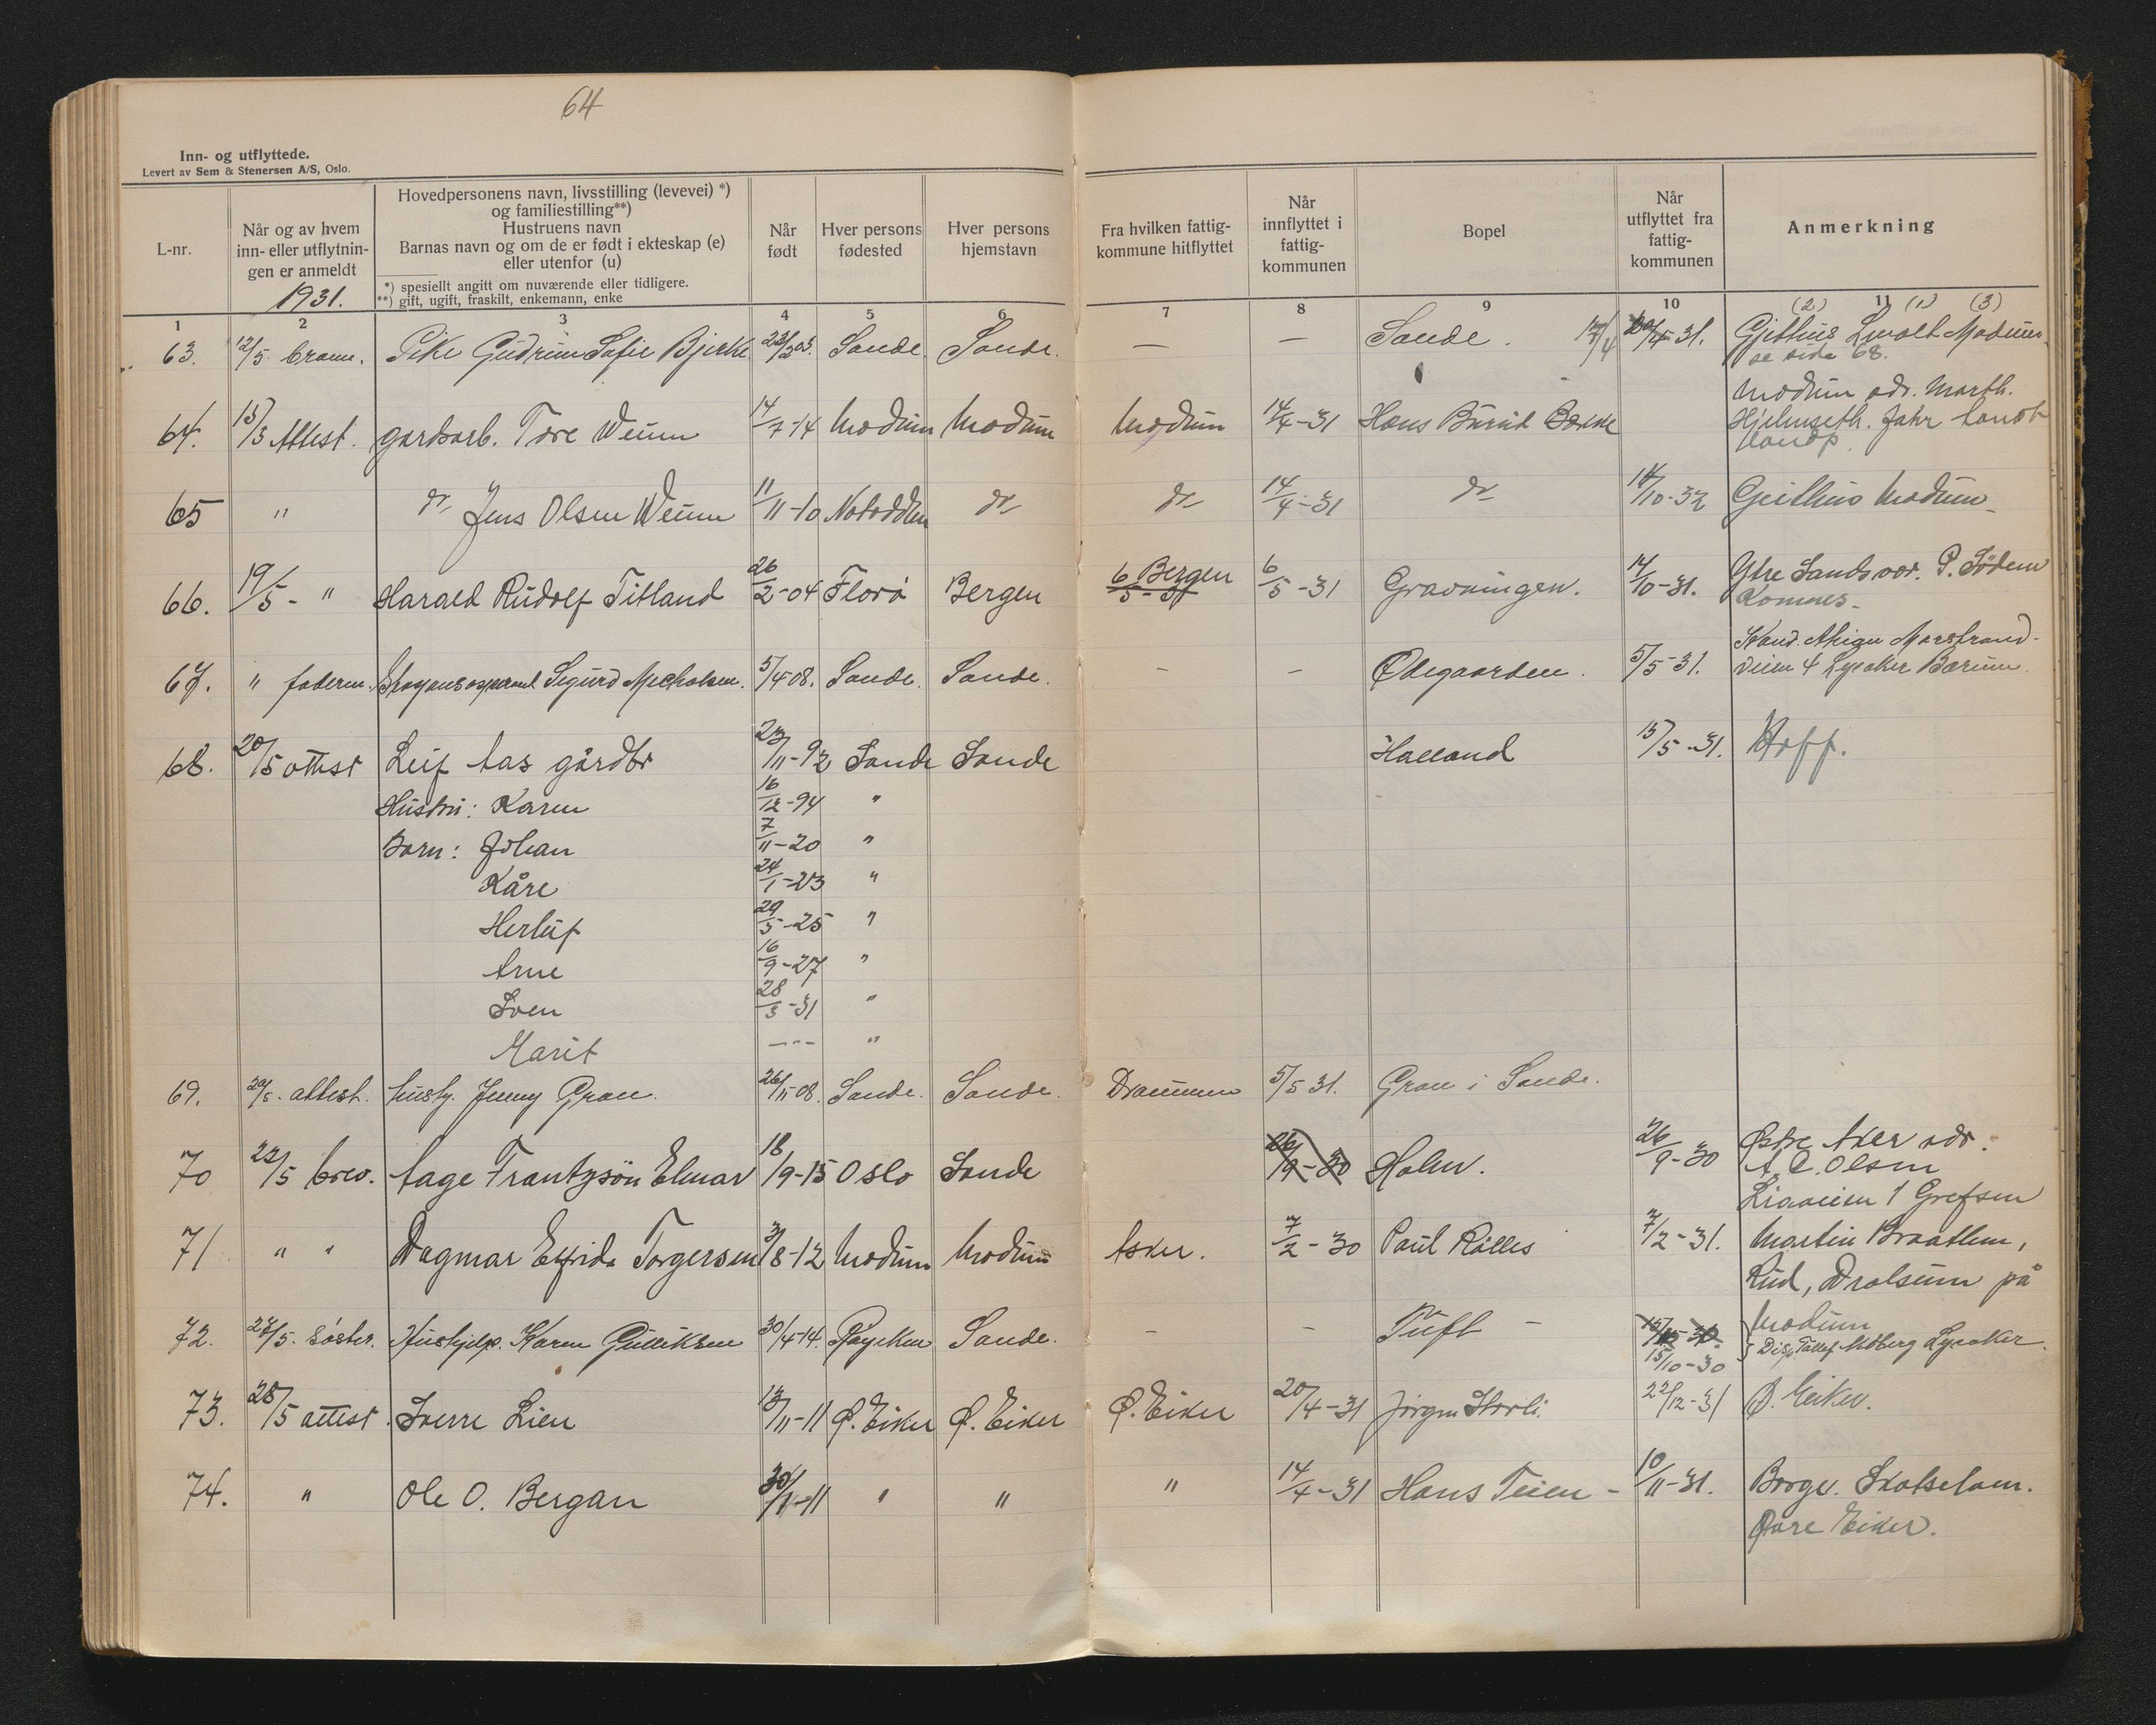 64
Inn- og utflyttede.
Levert av Sem & Stenersen A/S, Oslo.
L-nr.
Når og av hvem inn- eller utflytningen er anmeldt
1931.
Hovedpersonens navn, livsstilling (levevei) *)
og familiestilling**)
Hustruens navn
Barnas navn og om de er født i ekteskap (e)
eller utenfor (u)
*) spesiellt angitt om nuværende eller tidligere.
**) gift, ugift, fraskilt, enkemann, enke
Når født
Hver persons fødested
Hver persons hjemstavn
Fra hvilken fattigkommune hitflyttet
Når innflyttet i fattigkommunen
Bopel
Når utflyttet fra fattigkommunen
Anmerkning
1 2 3 4 5 6 7 8 9 10 11
(2) (1) (3)
63. 12/5. Pike Gudrun Sofie Bjerke Sande Sande. — — Sande. Gjithus Modum
se side 68.
64. Attest. gardsarb. Tore Weum 14/7-14 Modum Modum Modum 14/4-31 Hans Burud Bakke Modum adr. Marth.
65 " do Jens Olsen Weum 11/11-10 Notodden do do 14/4-31 do 14/10-32 Geithus Modum
66. 19/5 - " Harald Rudolf Titland 26/2-04 Florö Bergen Bergen 6/5-31 6/5-31 Gravningen. 14/10-31. Ytre Sandsvær. P. Södem
Komnes
67. " faderen. Sigurd 5/4 08. Sande. Sande. - - Ødegaarden. 5/5-31.
veien 4 Lysaker Bærum.
68. 20/5 attest Leif Aas gårdbr 23/11-92 Sande Sande Halland 15/5-31. Hoff.
Hustru: Karen 16/12-94 "
Barn: Johan 7/11-20 "
Kåre 24/1-23 "
Herluf 29/5-25 "
Arne 16/9-27 "
Sven 28/3-31 "
Marit --- "
69. 20/5. attest. Jenny Gran. 26/11-08. Sande. Sande. Drammen 5/5 31. Gran i Sande.
70 22/5 brev. Aage Frantzsön Elmar 18/9-15 Oslo Sande 26/9-30 Holm. 26/9-30 Østre Aker adr.
A. C. Olsen
1 Grefsen
71 " " Dagmar Elfrida Torgersen 3/8-12 Modum Modum Asker. 7/2-30 Paul Rölles 7/2-31. Martin Braathen,
Rud, Drolsum på
Modum
72. 27/5. søster. Hushjelp. Karen Gulliksen 30/4-14. Røyken Sande. - - Tuft - 15/10-30 Lysaker.
73. 28/5 attest. Sverre Lien 13/11-11 Ø. Eiker Ø. Eiker Ø. Eiker 20/4-31 Jörgen Storli. 22/12-31 Ø. Eiker.
74. " Ole O. Bergan " " " 14/4-31 Hans Teien - 10/11-31. Borge. Skotselven.
Øvre Eiker.